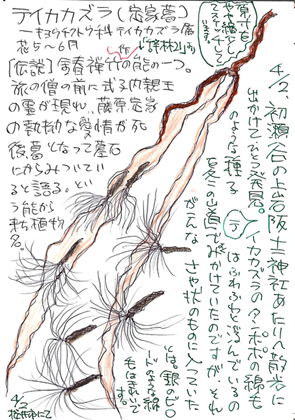 テイカカズラ(定家葛)
ーキョウチクトウ科テイカカズラ属
花5〜6月
[伝説]金春禅竹の能の一つ。
旅の僧の前に式子内親王
の霊が現れ、藤原定家
の執拗な愛情が死
後葛となって墓石
にからみついてい
ると語る。とい
う能から
来た植物
名。
4/2、初瀬谷の上岩阪土神社あたりへ散歩に
出かけてひとつ発見。
テイカカズラのタンポポの綿毛
のような種子
はふわふわと飛んでいる
夏に山道でみかけていたのですが、それ
がこんな
さや状のものに入っていた
とは。銀のビー
ドのような線
毛はきれいで
す。
4/2